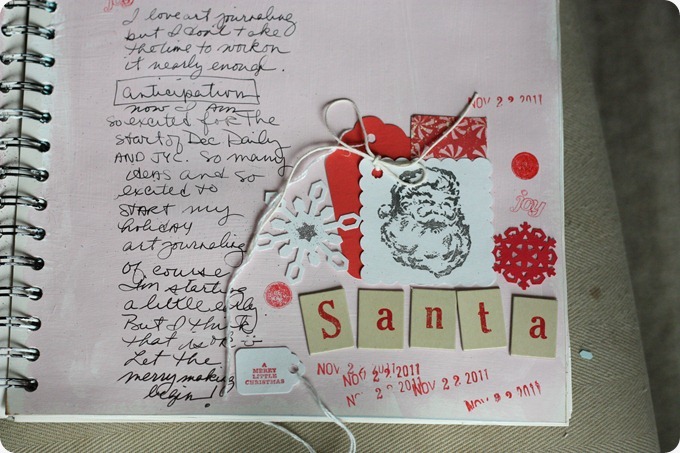 I love art journaling
but I don't take
the time to work on
it nearly enough.
anticipation
now I am
so excited for the
start of Dec Daily
AND JYC. So many
ideas and so
excited to
START my
holiday
art journaling
of course
I'm starting
a little early.
But I think
that works :)
Let the
merry making
begin!
NOV 22 2011
joy
Santa
A
MERRY
LITTLE
CHRISTMAS
NOV 2
NOV 22 2011
NOV 22 2011
NOV 22 2011
NOV 22 2011